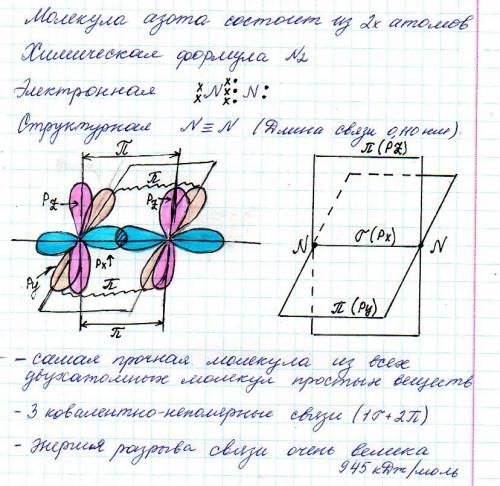 Молекула азота состоит из 2х атомов
Химическая формула N₂
Электронная ˣₓN ˣ•ˣ•ˣ• N :
Структурная N≡N (Длина связи 0,110 нм).
П П(Pz)
П
Pz Pz
N σ(Px) N
Px↑
Py
П П(Py)
П
- самая прочная молекула из всех
двухатомных молекул простых веществ
- 3 ковалентно-неполярные связи (1σ+2П)
- Энергия разрыва связи очень велика
945 кДж/моль